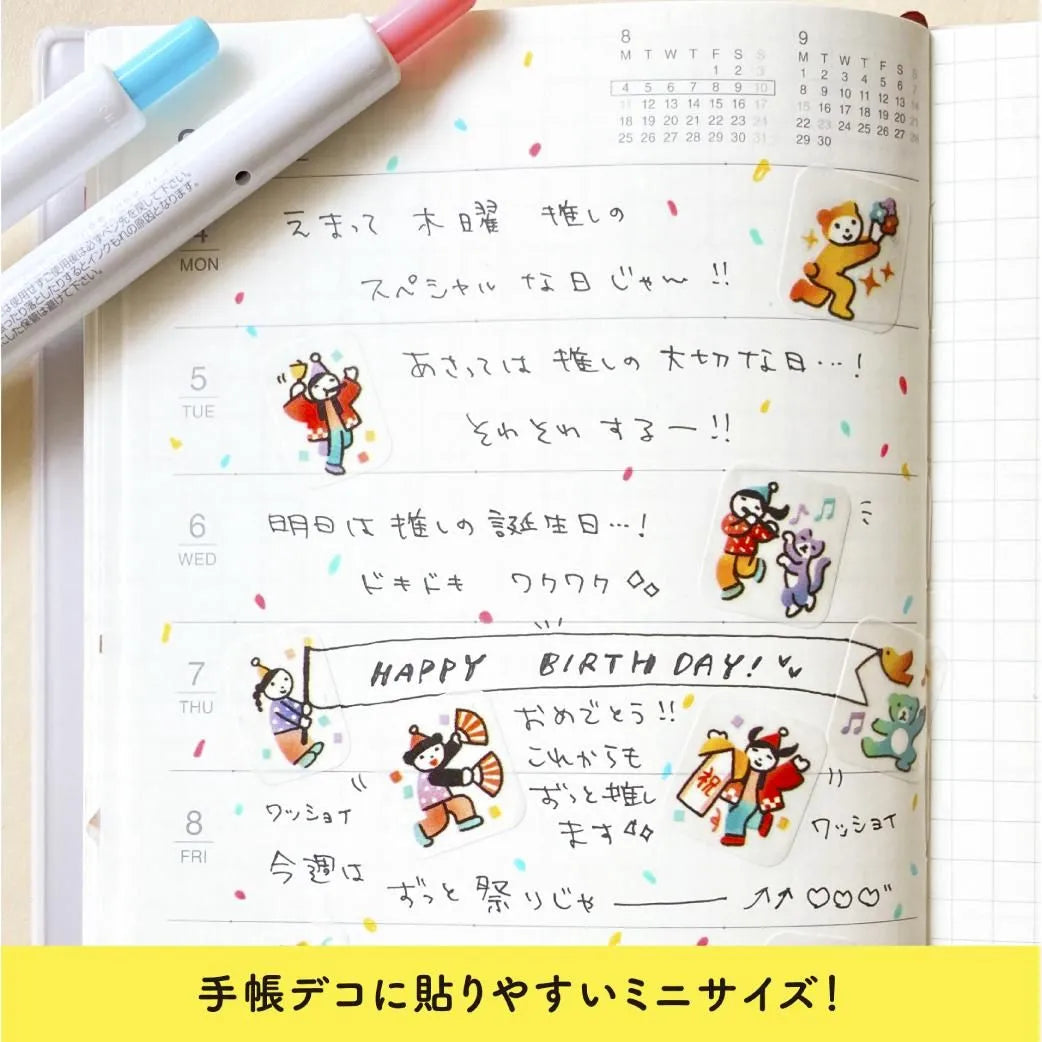 8
M T W T F S S
1 2 3
4 5 6 7 8 9 10
11 12 13 14 15 16 17
18 19 20 21 22 23 24
25 26 27 28 29 30 31
9
M T W T F S S
1 2 3 4 5 6 7
8 9 10 11 12 13 14
15 16 17 18 19 20 21
22 23 24 25 26 27 28
29 30
は使用せずご使用後は必ずペン先を戻して下さい。
ったり落としたりするとインクもれの原因となります。
した保管は避けて下さい。
4
MON
えまって 木曜 推しの
スペシャル な日じゃん !!
5
TUE
あさっては 推しの 大切な日…!
そわそわ するー!!
6
WED
明日は推しの誕生日…!
ドキドキ ワクワク
7
THU
HAPPY BIRTHDAY!
おめでとう!!
これからも
ずっと推し
ます
祝
8
FRI
ワッショイ
ワッショイ
今週は
ずっと祭りじゃ―――↗↗♡♡♡
手帳デコに貼りやすいミニサイズ!